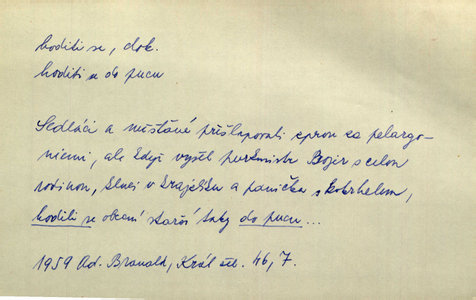 hoditi se, dok.
hoditi se do pucu
Sedláci a měšťané přišlapovali zprvu za pelargo-
niemi, ale když vyšel purkmistr Bozir s celou
rodinou, šlucí v krajslíku a panička s kobrhelem,
hodili se ostatní starší taky do pucu...
1959 Ad. Branald, Král žel. 46, 7.